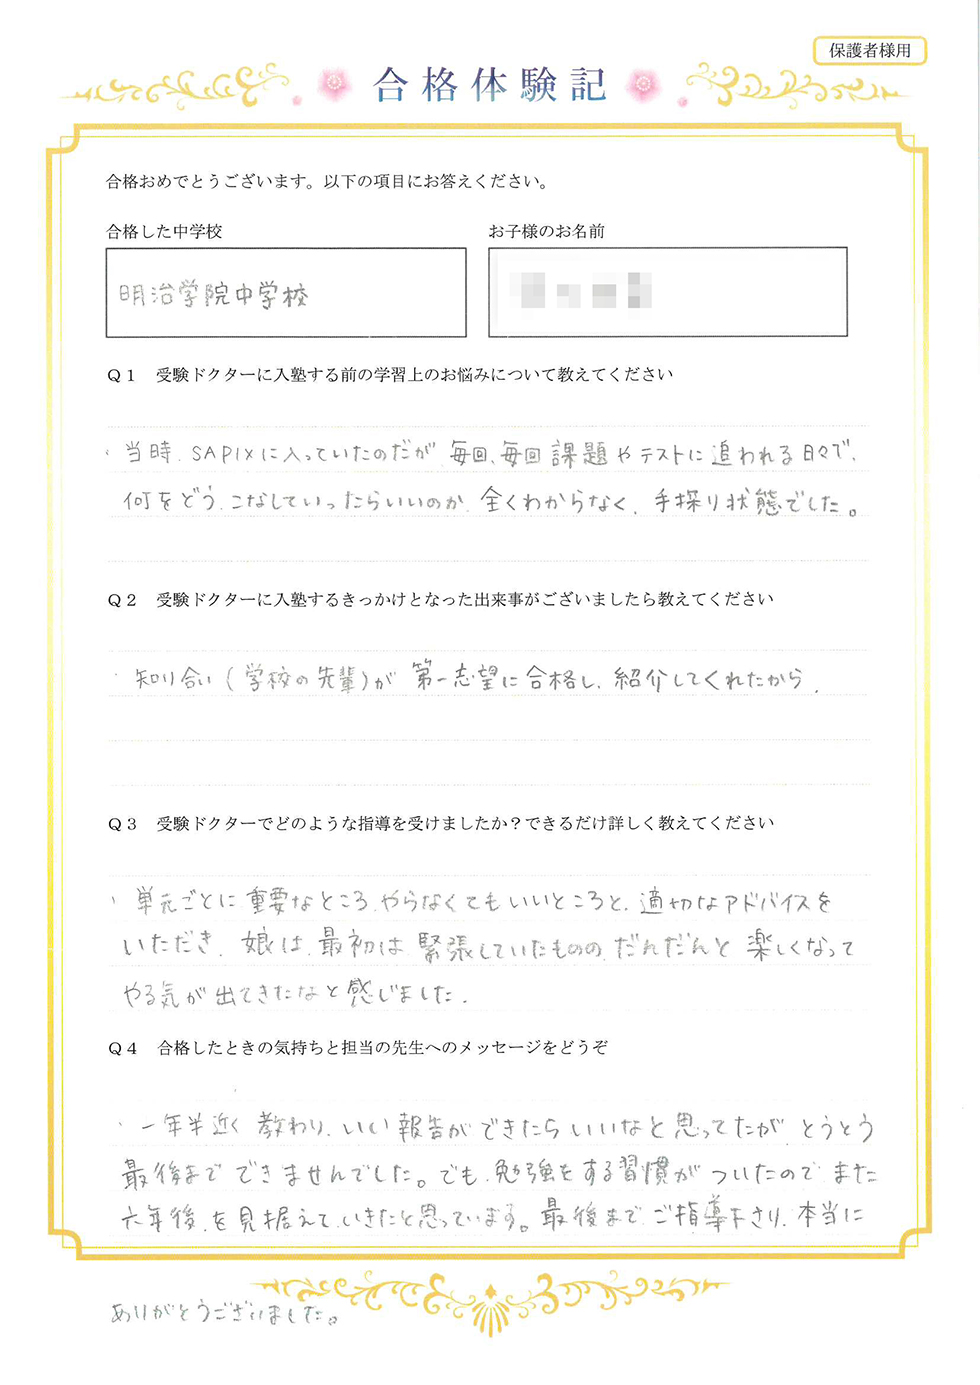 保護者様用
合格体験記
合格おめでとうございます。以下の項目にお答えください。
合格した中学校
お子様のお名前
明治学院中学校
Q1 受験ドクターに入塾する前の学習上のお悩みについて教えてください
・当時、SAPIXに入っていたのだが、毎回、毎回課題やテストに追われる日々で、
何をどう、こなしていったらいいのか、全くわからなく、手探り状態でした。
Q2 受験ドクターに入塾するきっかけとなった出来事がございましたら教えてください
・知り合い(学校の先輩)が第一志望に合格し、紹介してくれたから、
Q3 受験ドクターでどのような指導を受けましたか?できるだけ詳しく教えてください
・単元ごとに重要なところ、やらなくてもいいところと、適切なアドバイスを
いただき、娘は、最初は緊張していたものの、だんだんと楽しくなって
やる気が出てきたなと感じました、
Q4 合格したときの気持ちと担当の先生へのメッセージをどうぞ
・一年半近く教わり、いい報告ができたらいいなと思ってたが、とうとう
最後までできませんでした。でも、勉強をする習慣がついたので、また
六年後、を見据えて、いきたと思っています。最後までご指導下さり、本当に
ありがとうございました。